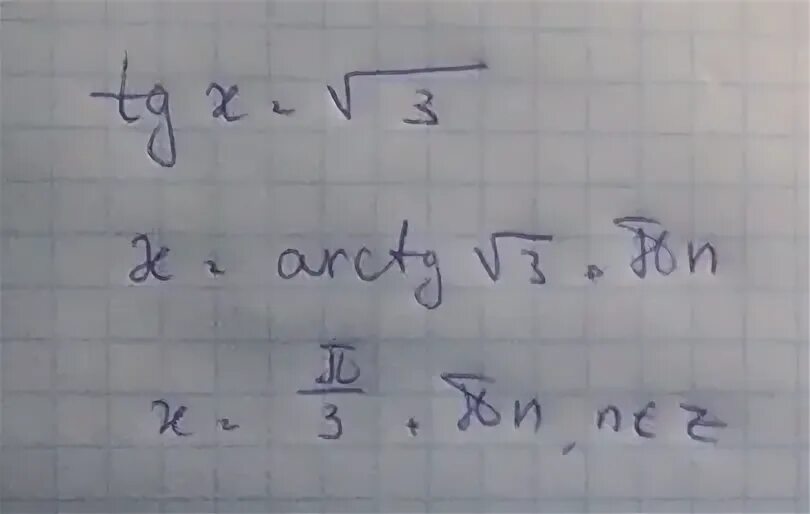 tg x = √3
x = arctg √3 + πn
x = π/3 + πn, n ∈ z